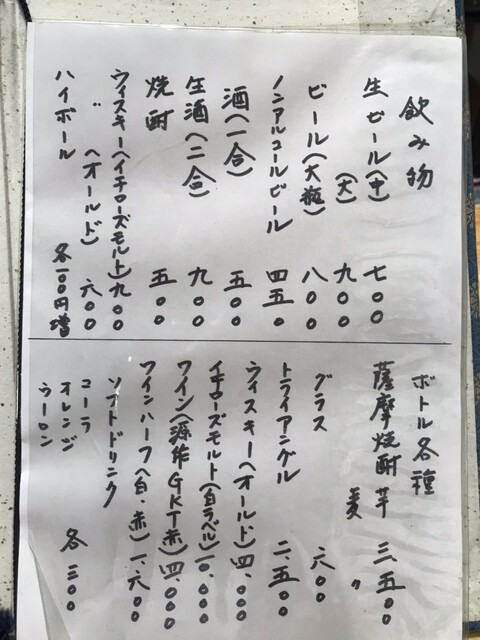 飲み物
生ビール(中) 七〇〇
(大) 九〇〇
ビール(大瓶) 八〇〇
ノンアルコールビール 四五〇
酒(一合) 五〇〇
生酒(二合) 九〇〇
焼酎 五〇〇
ウィスキー(イチローズモルト) 九〇〇
〃 (オールド) 六〇〇
ハイボール 各一〇〇円増
ボトル各種
薩摩焼酎 芋 三、五〇〇
麦 〃
グラス 六〇〇
トライアングル 二、五〇〇
ウィスキー(オールド) 四、〇〇〇
イチローズモルト(白ラベル) 一〇、〇〇〇
ワイン(源作GKT赤) 四、〇〇〇
ワインハーフ(白・赤) 一、六〇〇
ソフトドリンク
コーラ
オレンジ 各三〇〇
ウーロン